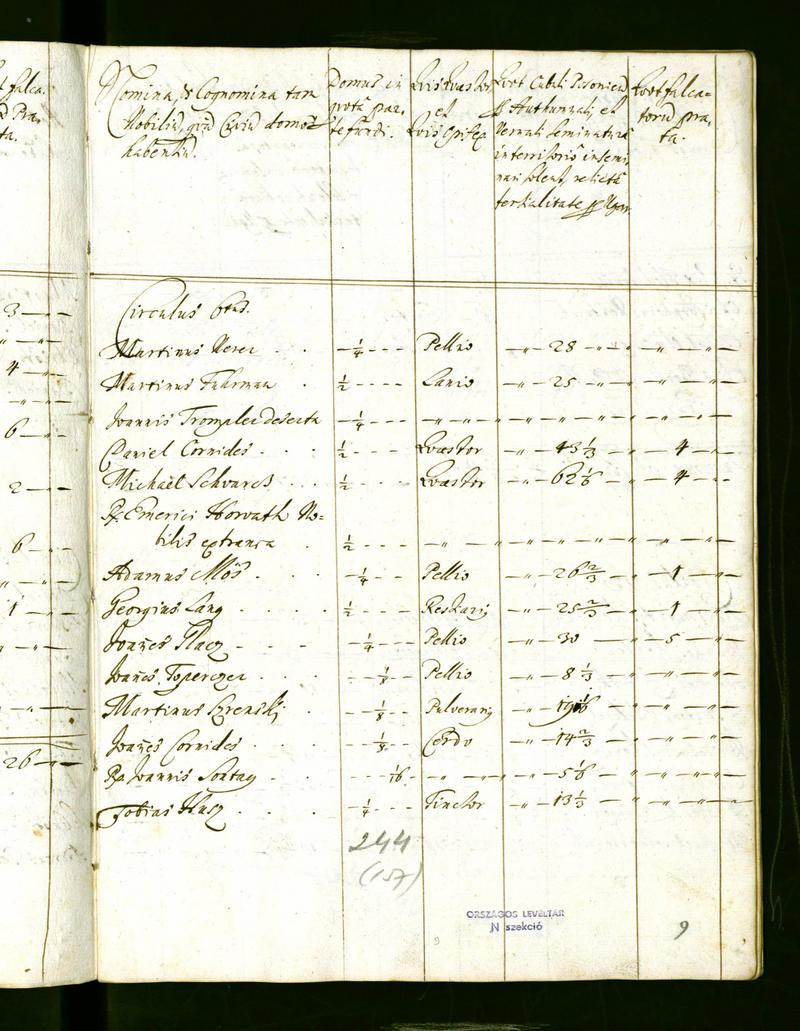 Nomina, & Cognomina tam
Nobiliũ, quã Civiũ domos
habentiũ.
Domus in
quota par,
te fundi.
Qvis Quæstor
et
Qvis Opifex
Qvot Cubuli Posoniens
Authumnali, et
Vernali seminatura
in territorio insemi,
nari solent, relicta
tertialitate
Qvot falca=
torũ pra,
ta.
falca.
Pra,
ta.
Circulus 6tus.
Martinus Verer . . — 1/4 - - - Pellio — „ — 28 — „ — „ — „ —
Martinus Fuhrman . 1/2 - - - - Lanio — „ — 25 — „ — „ — „ —
Joannis Trompler deserta — 1/4 - - - — „ — „ — „ — „ — „ — „ —
Daniel Cornides . . . 1/2 - - - - Qvæstor — „ — 43 1/3 — „ — 4 — „ —
Michaël Schvarcz . . 1/2 - - - - Qvæstor — „ — 62 1/6 — „ — 4 — „ —
Emerici Horvath No=
bilis extranea . 1/2 - - - — „ — „ — „ — „ — „ — „ —
Adamus Mös . . . — 1/4 - - - Pellio — „ — 26 2/3 — „ — 1 — „ —
Georgius Lang . . . . 1/2 - - - - — „ — 25 2/3 — „ — 1 — „ —
Joañes Glacz - - - — 1/4 - - - Pellio — „ — 30 — „ — 5 — „ —
Joañes Toperczer . . . - - 1/8 - - Pellio — „ — 8 1/3 — „ — „ — „ —
Martinus - - 1/8 - - Pulverarij — „ — 19 1/6 — „ — „ — „ —
Joañes Cornides . . . - - 1/8 - - Cerdo — „ — 14 2/3 — „ — „ — „ —
Joannis Sontag . . . - - - 1/16 - — „ — „ — 5 1/6 — „ — „ — „ —
Tobias Husz . . . - 1/4 - - - Tinctor — „ — 13 1/3 — „ — „ — „ —
3 — „ —
4 — „ —
6 — „ —
2 — „ —
6 — „ —
1 — „ —
26 — „ —
244
(157)
ORSZÁGOS LEVÉLTÁR
N szekció
9